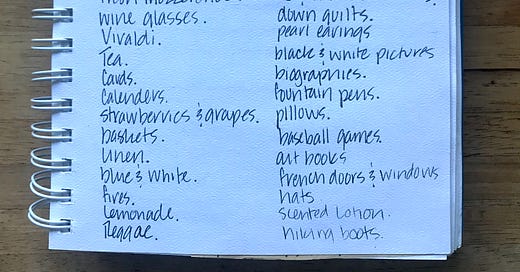 wine glasses.
Vivaldi.
Tea.
Cards.
Calenders.
strawberries & grapes.
baskets.
linen.
blue & white.
fires.
Lemonade.
Reggae.
down quilts.
pearl earings
black & white pictures
biographies.
fountain pens.
pillows.
baseball games.
art books
french doors & windows
hats
scented lotion.
hiking boots.